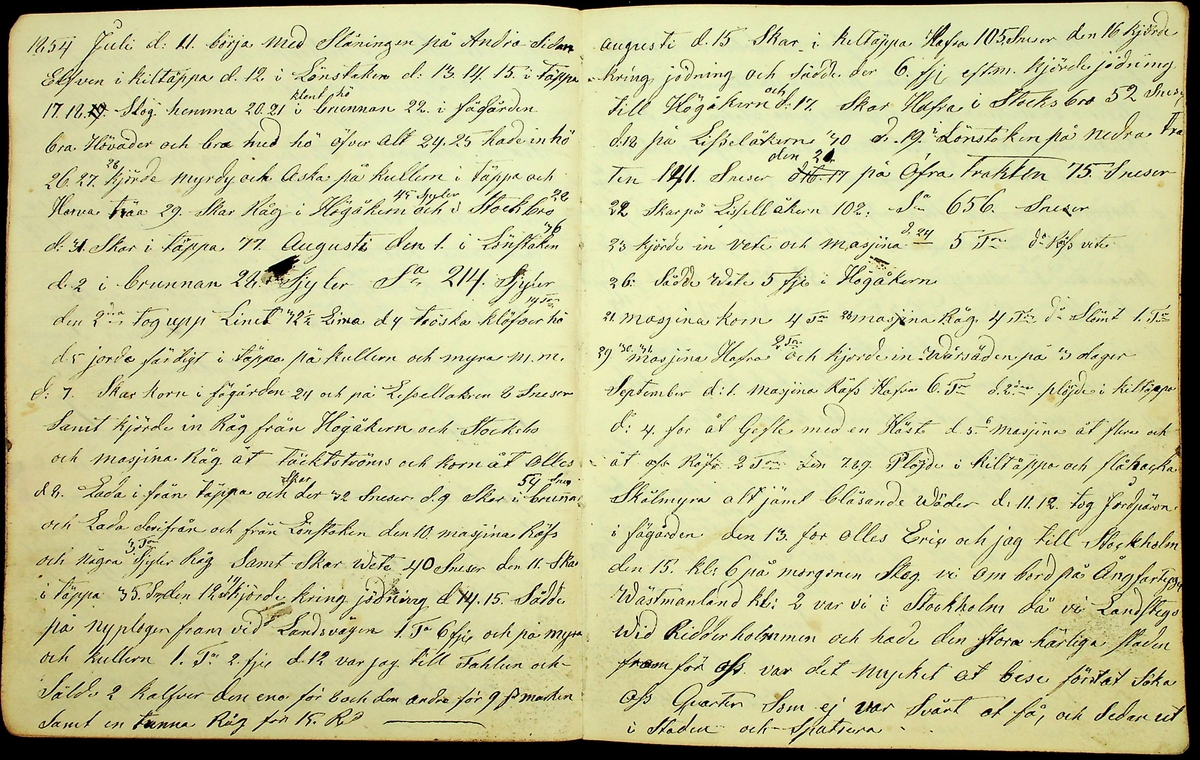 1854 Juli d: 11. börja med Slåningen på Andra Sidan
Elfven i kiltäppa d. 12. i Lönstaken d: 13. 14. 15. i täppa
17. 18. 19 Slog hemma 20. 21 i brunnan 22. i fägården
bra Höväder och bra med hö öfver alt 24. 25 hade in hö
26. 27. 28 kjörde myrdy och Aska på kullern i täppa och
Harva 29. Skar Råg i Högåkern 45 Skyler och i Stocksbro 22
d: 31 Skar i täppa 77. Augusti den 1. i Lönstaken 76
d. 2 i brunnan 28 Skyler Sa 214. Skyler
den 2dra tog upp Linet 72½ Lima d 4 tröska klöfverhö
d 5 jorda färdigt i täppa på kullern och myra m. m.
d: 7. Skar korn i fägården 24 och på Lisselåkren 8 Sneser
Samt kjörde in Råg från Högåkern och Stocksbo
och masjina Råg åt Täcktströms och korn åt Olles
d 8. Lada i från täppa och Skar der 32 Sneser d. 9 Skar i brunna 54 Snes
och Lada derifrån och från Lönstaken den 10. masjina Råfs
och några Skyler Råg Samt Skar wete 40 Sneser den 11. Skar
i täppa 35. Sn den 12 kjörde kring jödning d 14. 15. Sådde
på nyplogen fram vid Landsvägen 1 Ta 6 fjr och på myra
och kullern 1. Ta 2 fjr d. 12 var jag till Fahlun och
Sålde 2 kalfver den ena för 8 och den andra för 9 marken
Samt en tunna Råg för 15. Rd
augusti d. 15 Skar i kiltäppa Hafra 105 Sneser den 16 kjörde
kring jödning och Sådde der 6. fjr eftm. kjörde jödning
till Högåkern och d: 17. Skar Hafra i Stocksbro 52 Sneser
d. 18 på Lisselåkern 70 d. 19. i Lönstaken på nedra tra
ten 141. Sneser den 21. på öfra trakten 75 Sneser
22 Skar på Lissellåkern 102. Sa 656. Sneser
23 kjörde in vete och masjina d. 24 5 Tr do Råfs vete
26. Sådde wete 5 fjr i Högåkern
masjina korn 4 Tr masjina Råg 4 Tr do Slömt 1. Tr
29 30. 31. masjina Hafra 2 Tr och kjörde in Wårsäden på 3 dagar
September d: 1. masjina Råfs Hafra 6. Tr d. 2dra plöjde i kiltäppa
d: 4. for åt Gefle med en Häst d 5. masjina åt flera och
åt ofs Råfs 2 Tr den 7. 8. 9. Plöjde i kiltäppa och flåhacka
Skålmyra alt jämt blåsande Wäder d: 11. 12. tog Jordpäron
i fägården den 13. for Olles Eric och jag till Stockholm
den 15. kl: 6 på morgonen Steg vi om bord på Ångfartyget
Wästmanland kl: 2 var vi i Stockholm då vi Landstego
Wid Ridderholmmen och hade den Stora härliga staden
fram för ofs. var det mycket at bese först at Söka
ofs Quarter Som ej var Svårt at få, och Sedan ut
i Staden och Spatsera